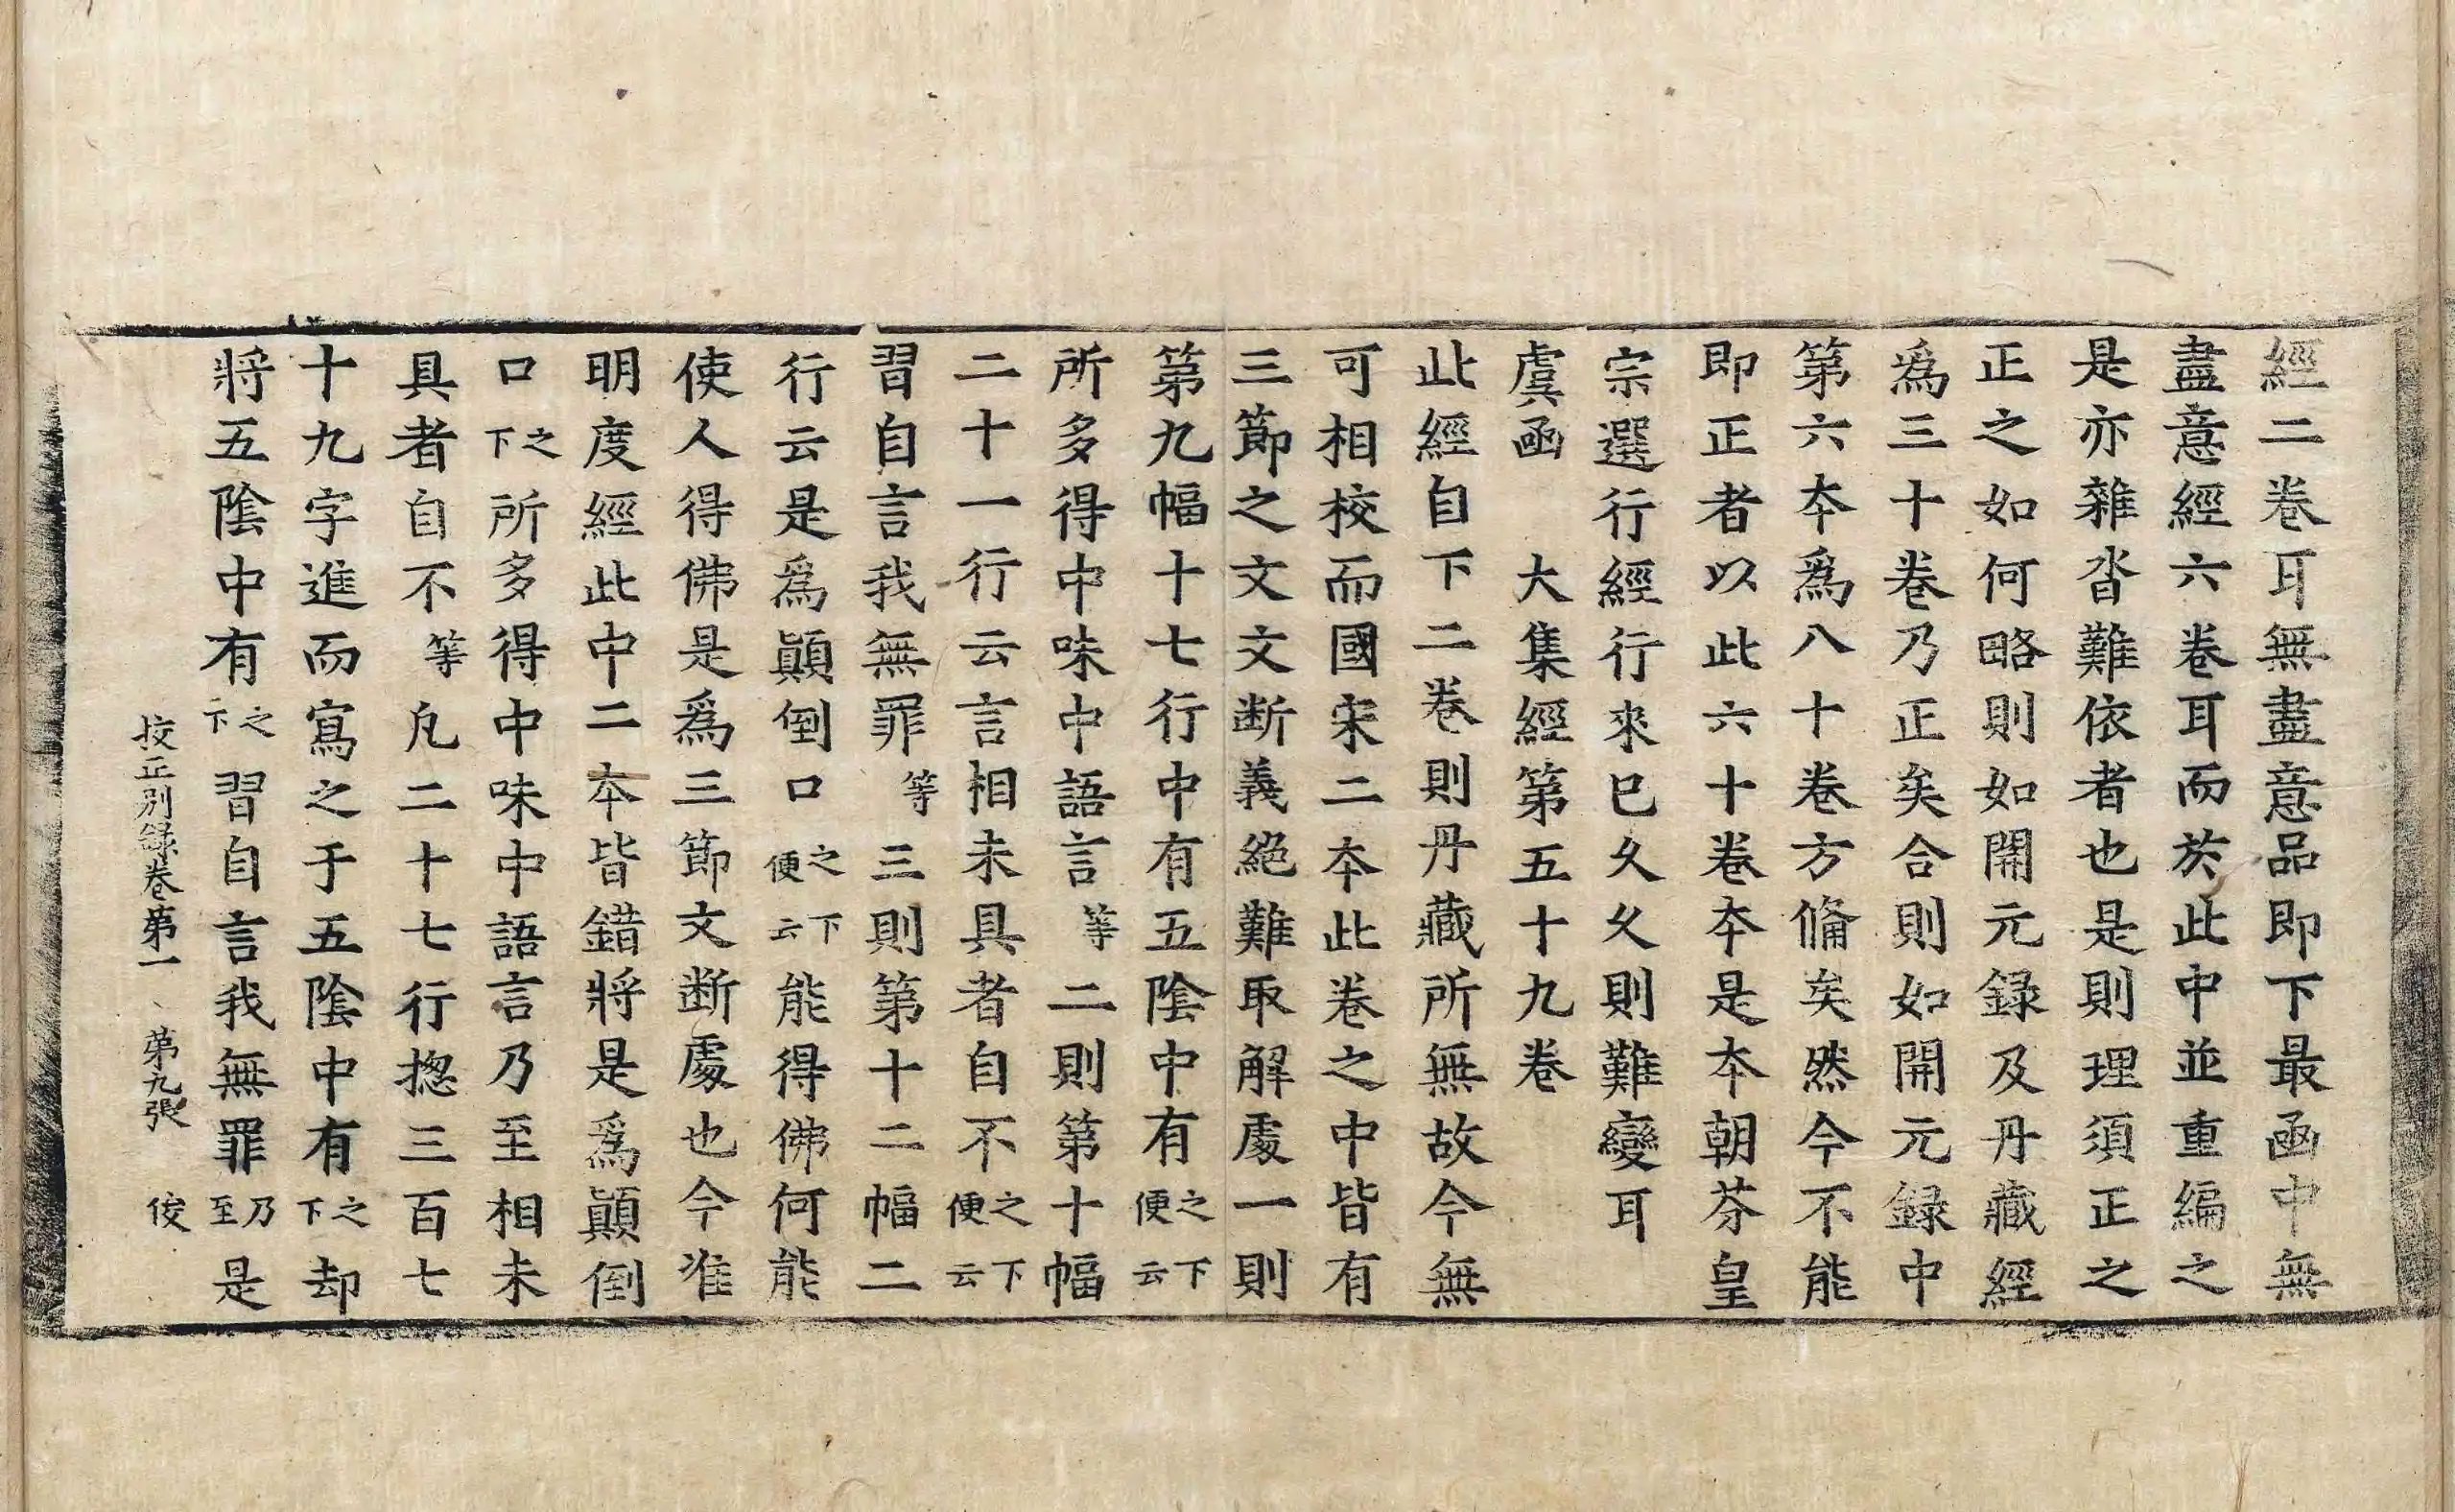 經二卷耳無盡意品即下最函中無
盡意經六卷耳而於此中並重編之
是亦雜沓難依者也是則理須正之
正之如何略則如開元録及丹藏經
爲三十卷乃正矣合則如開元録中
第六本爲八十卷方俻矣然今不能
即正者以此六十卷本是本朝芬皇
宗選行經行來已久久則難變耳
虞函　大集經第五十九卷
此經自下二卷則丹藏所無故今無
可相校而國宋二本此卷之中皆有
三節之文文断義絕難取解處一則
第九幅十七行中有五陰中有之下便云
所多得中味中語言等二則第十幅
二十一行云言相未具者自不之下便云
習自言我無罪等三則第十二幅二
行云是爲顚倒口之下便云能得佛何能
使人得佛是爲三節文断處也今准
明度經此中二本皆錯將是爲顚倒
口之下所多得中味中語言乃至相未
具者自不等凡二十七行揔三百七
十九字進而寫之于五陰中有之下却
將五陰中有之下習自言我無罪乃至是
挍正別録卷第一　第九張　俊